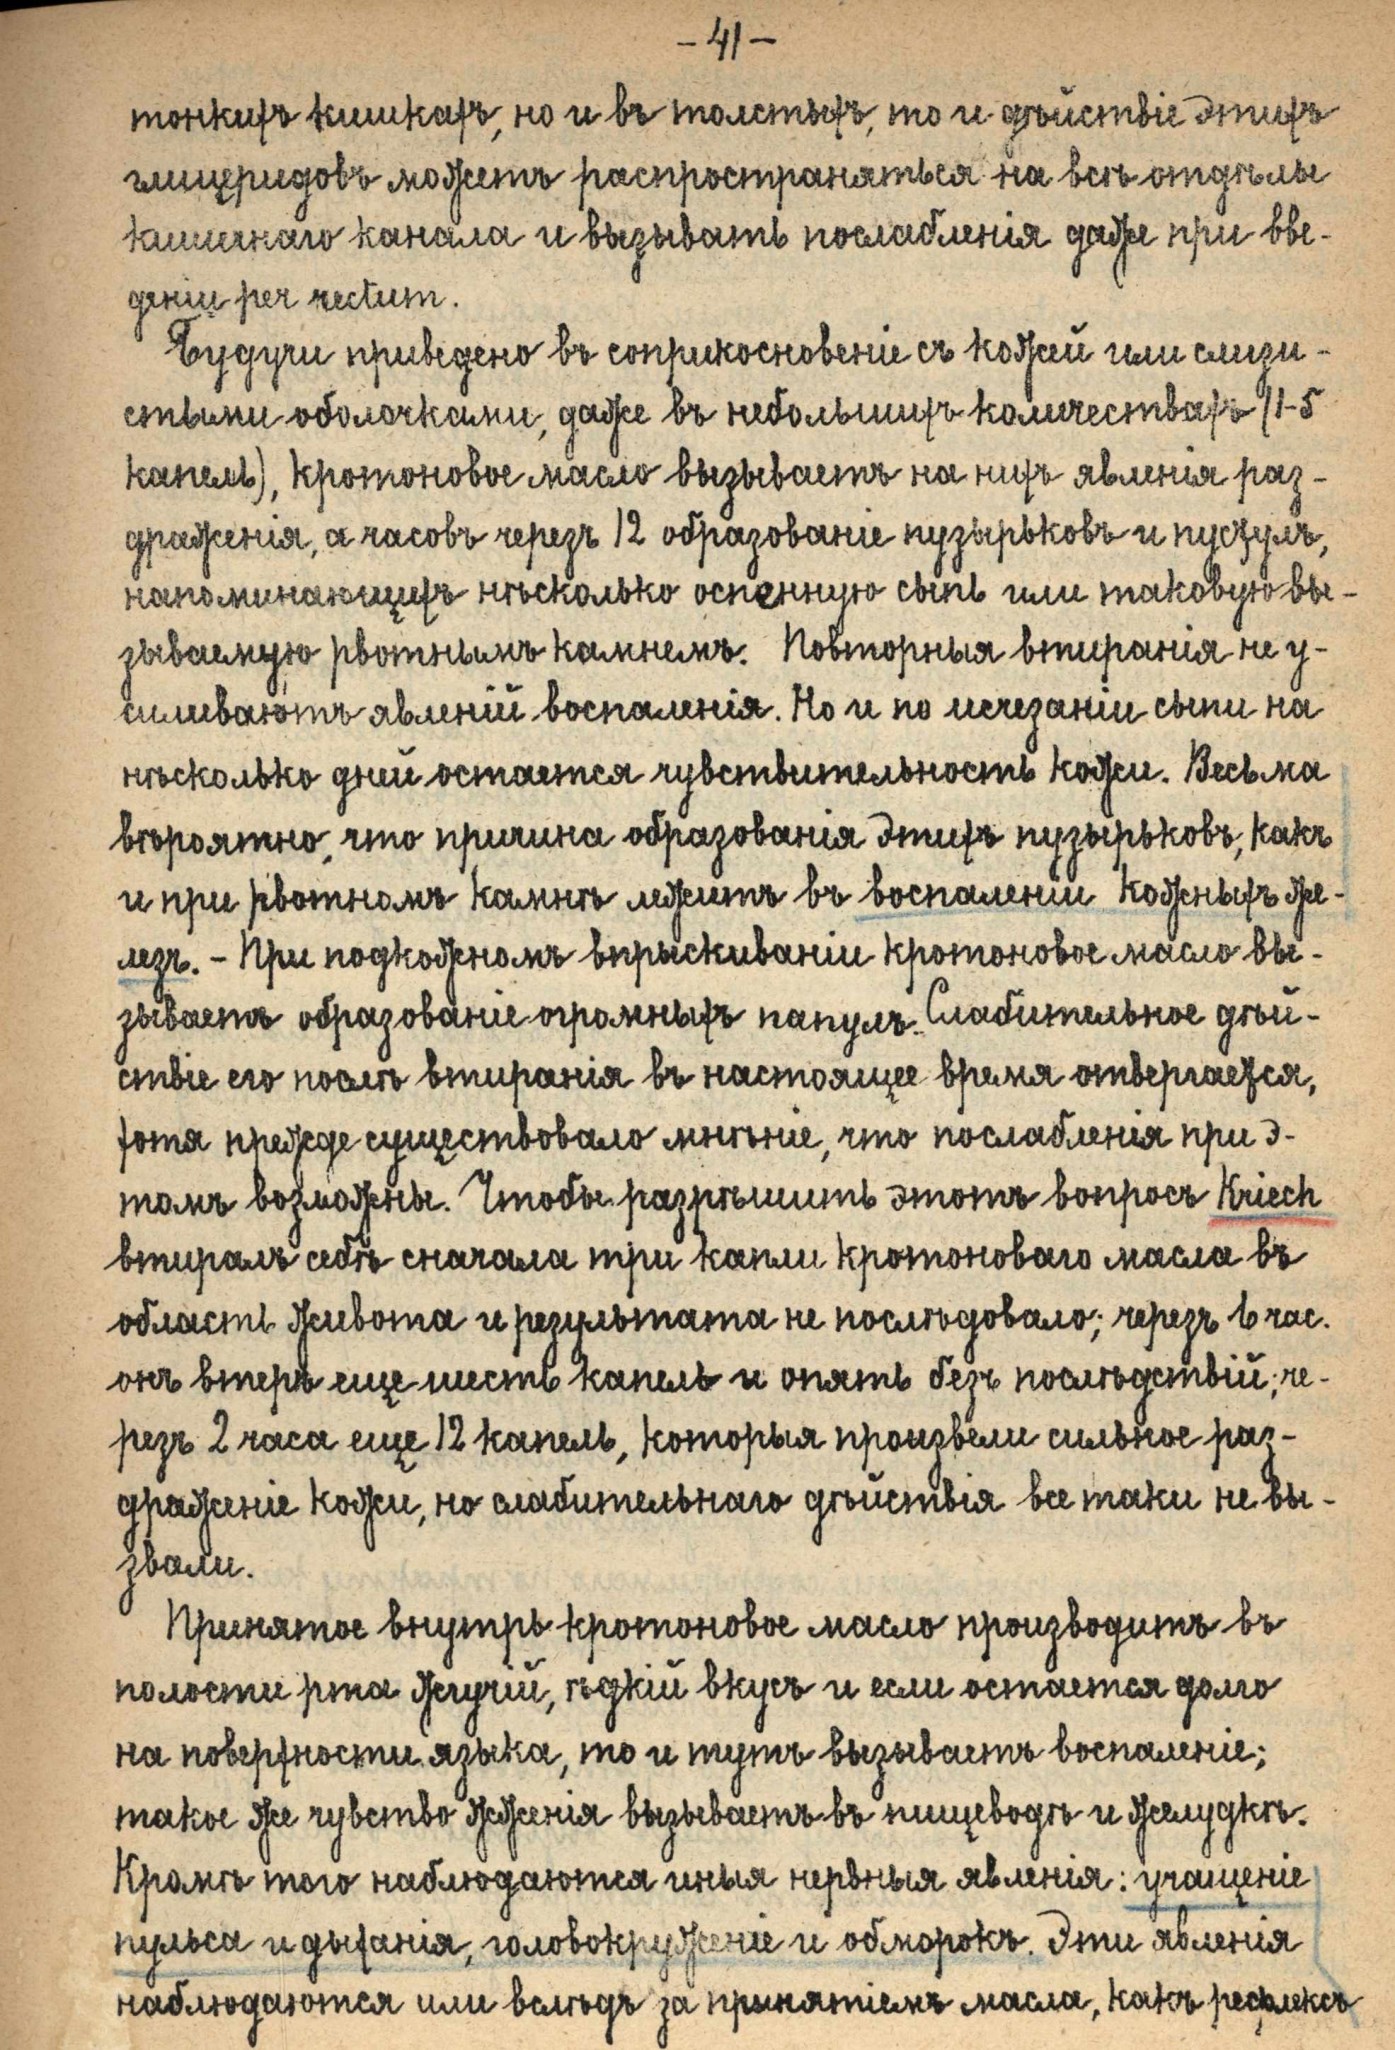 - 41 -
тонкихъ кишкахъ, но и въ толстыхъ, то и дѣйствіе этихъ
глицеридовъ можетъ распространяться на всѣ отдѣлы
кишечнаго канала и вызывать послабленія даже при вве-
деніи per rectum.
Будучи приведено въ соприкосновеніе съ кожей или слизи-
стыми оболочками, даже въ небольшихъ количествахъ (1-5
капель), кротоновое масло вызываетъ на нихъ явленія раз-
драженія, а часовъ черезъ 12 образованіе пузырьковъ и пустулъ,
напоминающихъ нѣсколько оспенную сыпь или таковую вы-
зываемую рвотнымъ камнемъ. Повторныя втиранія не у-
силиваютъ явленій воспаленія. Но и по исчезаніи сыпи на
нѣсколько дней остается чувствительность кожи. Весьма
вѣроятно, что причина образованія этихъ пузырьковъ, какъ
и при рвотномъ камнѣ лежитъ въ воспаленіи кожныхъ же-
лезъ. - При подкожномъ впрыскиваніи кротоновое масло вы-
зываетъ образованіе огромныхъ папулъ. Слабительное дѣй-
ствіе его послѣ втиранія въ настоящее время отвергается,
хотя прежде существовало мнѣніе, что послабленія при э-
томъ возможны. Чтобы разрѣшить этотъ вопросъ Kriech
втиралъ себѣ сначала три капли кротоноваго масла въ
область живота и результата не послѣдовало; черезъ 6 час.
онъ втеръ еще шесть капель и опять безъ послѣдствій; че-
резъ 2 часа еще 12 капель, которыя произвели сильное раз-
драженіе кожи, но слабительнаго дѣйствія все таки не вы-
звали.
Принятое внутрь кротоновое масло производитъ въ
полости рта жгучій, ѣдкій вкусъ и если остается долго
на поверхности языка, то и тутъ вызываетъ воспаленіе;
такое же чувство жженія вызываетъ въ пищеводѣ и желудкѣ.
Кромѣ того наблюдаются иныя нервныя явленія: учащеніе
пульса и дыханія, головокруженіе и обморокъ. Эти явленія
наблюдаются или вслѣдъ за принятіемъ масла, какъ рефлексъ